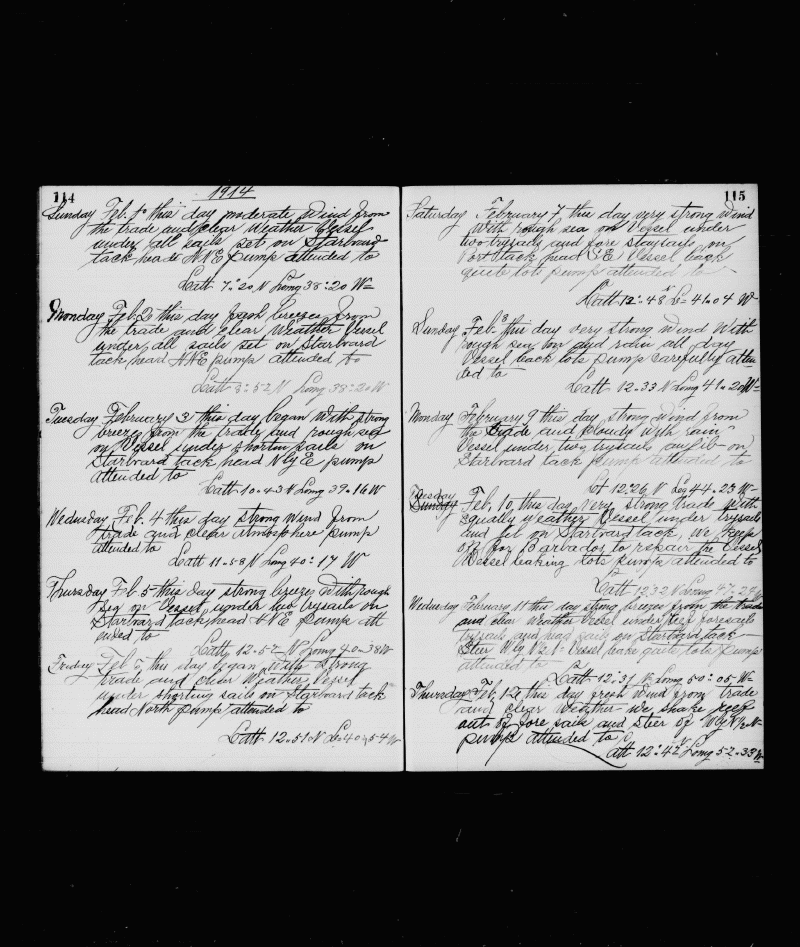 114
1914
Sunday Feb. 1st this day moderate wind from
the trade and clear weather Vessel
under all sails set on Starboard
tack head NNE pump attended to
Latt 7°20 N Long 38°20 W
Monday Feb 2 this day fresh breezes from
the trade and clear weather Vessel
under all sails set on Starboard
tack head NNE pump attended to
Latt 8°52 N Long 38°20 W
Tuesday February 3 this day began with strong
breeze from the trade and rough sea
on Vessel under shortin sails on
Starboard tack head N by E pump
attended to
Latt 10-43 N Long 39-16 W
Wednesday Feb. 4 this day strong wind from
trade and clear atmosphere pump
attended to
Latt 11-58 N Long 40°17 W
Thursday Feb 5 this day strong breezes with rough
sea on Vessel under two trysails on
Starboard tack head NNE pump att
ended to
Latt 12-52 N Long 40-38 W
Friday Feb 6, this day began with strong
trade and clear weather Vessel
under shorting sails on Starboard tack
head North pump attended to
Latt 12-51 N Lo 40-54 W
115
Saturday February 7 this day very strong wind
with rough sea on Vessel under
two trysails and fore staysails on
Port tack head Vessel leack
quite lots pump attended to
Latt 12-48 N Lo 41-04 W
Sunday Feb. 8 this day very strong wind with
rough sea on and rain all day
Vessel leack lots pump carefully atten
ded to
Latt 12-33 N Long 41-20 W
Monday February 9 this day strong wind from
the trade and cloudy with rain
Vessel under two trysails and jib on
Starboard tack pump attended to
Lt 12.26 N Log 44-23 W
Tuesday
Sunday Feb. 10, this day very strong trade with
squally weather Vessel under trysails
and jib on Starboard tack, we keep
off for Barbados to repair the Vessel
Vessel leaking lots pump attended to
Latt 12.32 N Long 47-24 W
Wednesday February 11 this day strong breezes from the trade
and clear weather Vessel under reef foresails
trysails and head sails on starboard tack
Steer W by N ½ N Vessel leake quite lots pump
attended to
Latt 12°37 N Long 50°05 W
Thursday Feb. 12, this day fresh wind from trade
and clear weather we shake reef
out of fore sails and steer of W by N ½ N
pump attended to
Latt 12°42 N Long 52-33 W